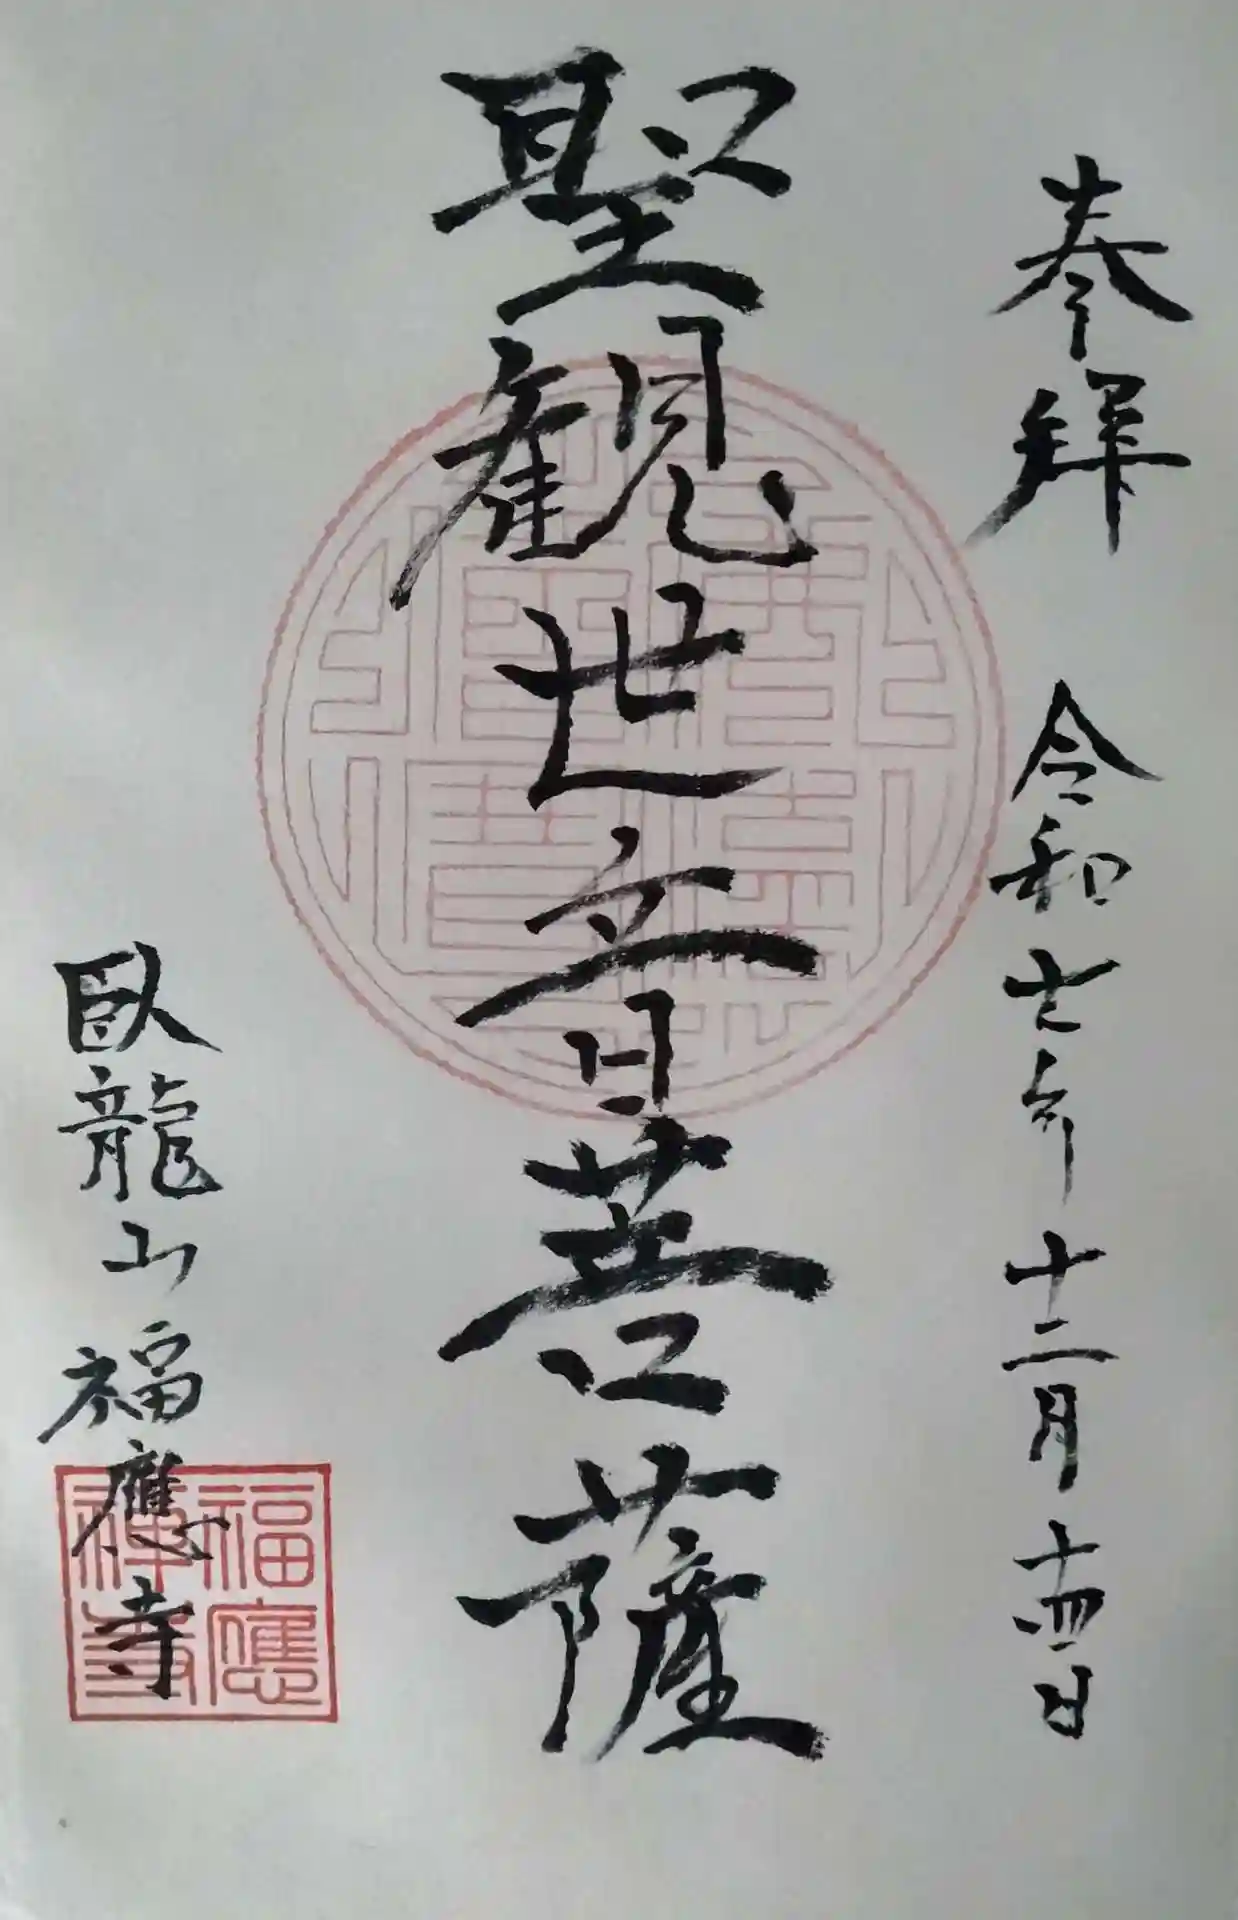 奉拝 令和七年十二月十四日
聖観世音菩薩
臥龍山 福應寺
福應
禅寺